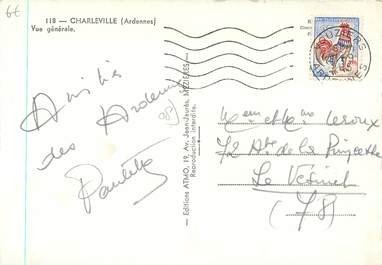 6€
118 — CHARLEVILLE (Ardennes)
Vue générale.
VOUZIERS
ARDENNES
Amitiés
des Ardennes
Paulette
- Editions ATMO, 19, Av. Jean-Jaurès, MEZIERES -
Reproduction interdite.
Leroux
72 de la Princesse
Le Vésinet
(78)